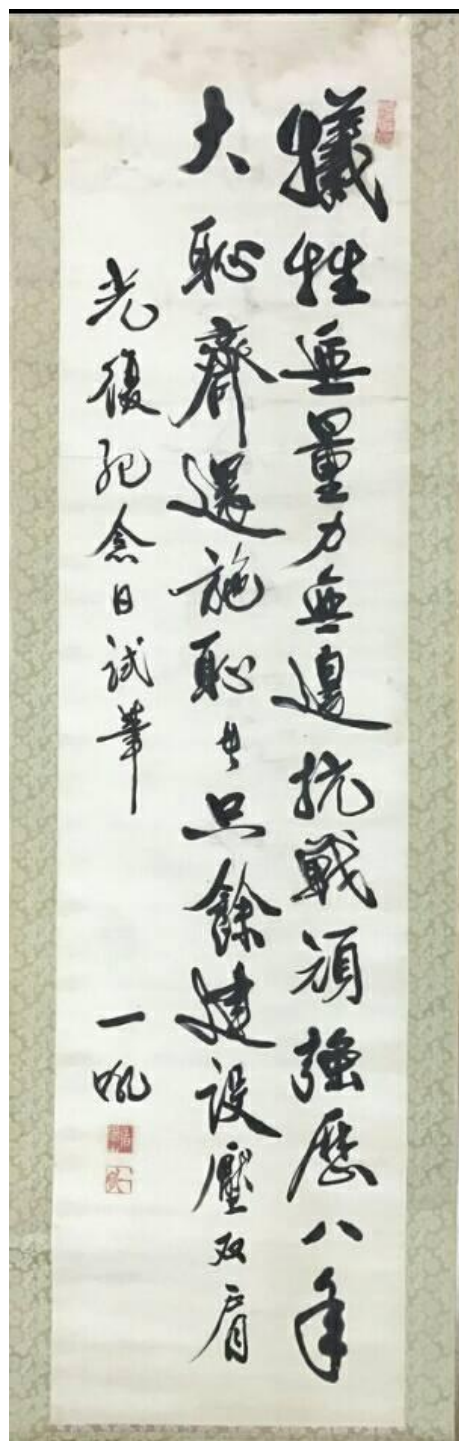 犧牲無量力無邊抗戰頑強歷八年
大恥齊還施恥者只餘建設壓双肩
光復紀念日試筆
一吼